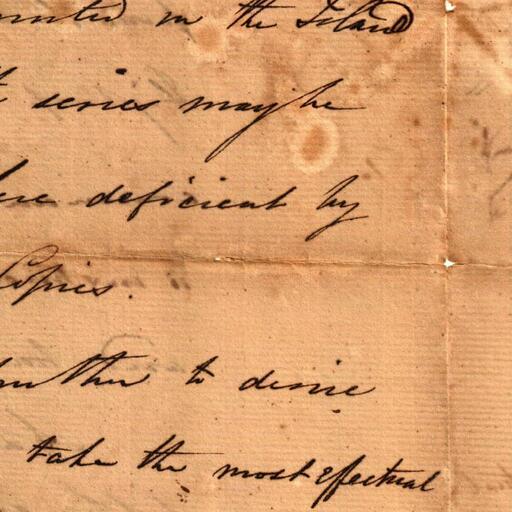 in the Island
series may be
deficient by
Copies.
to desire
take the most effectual